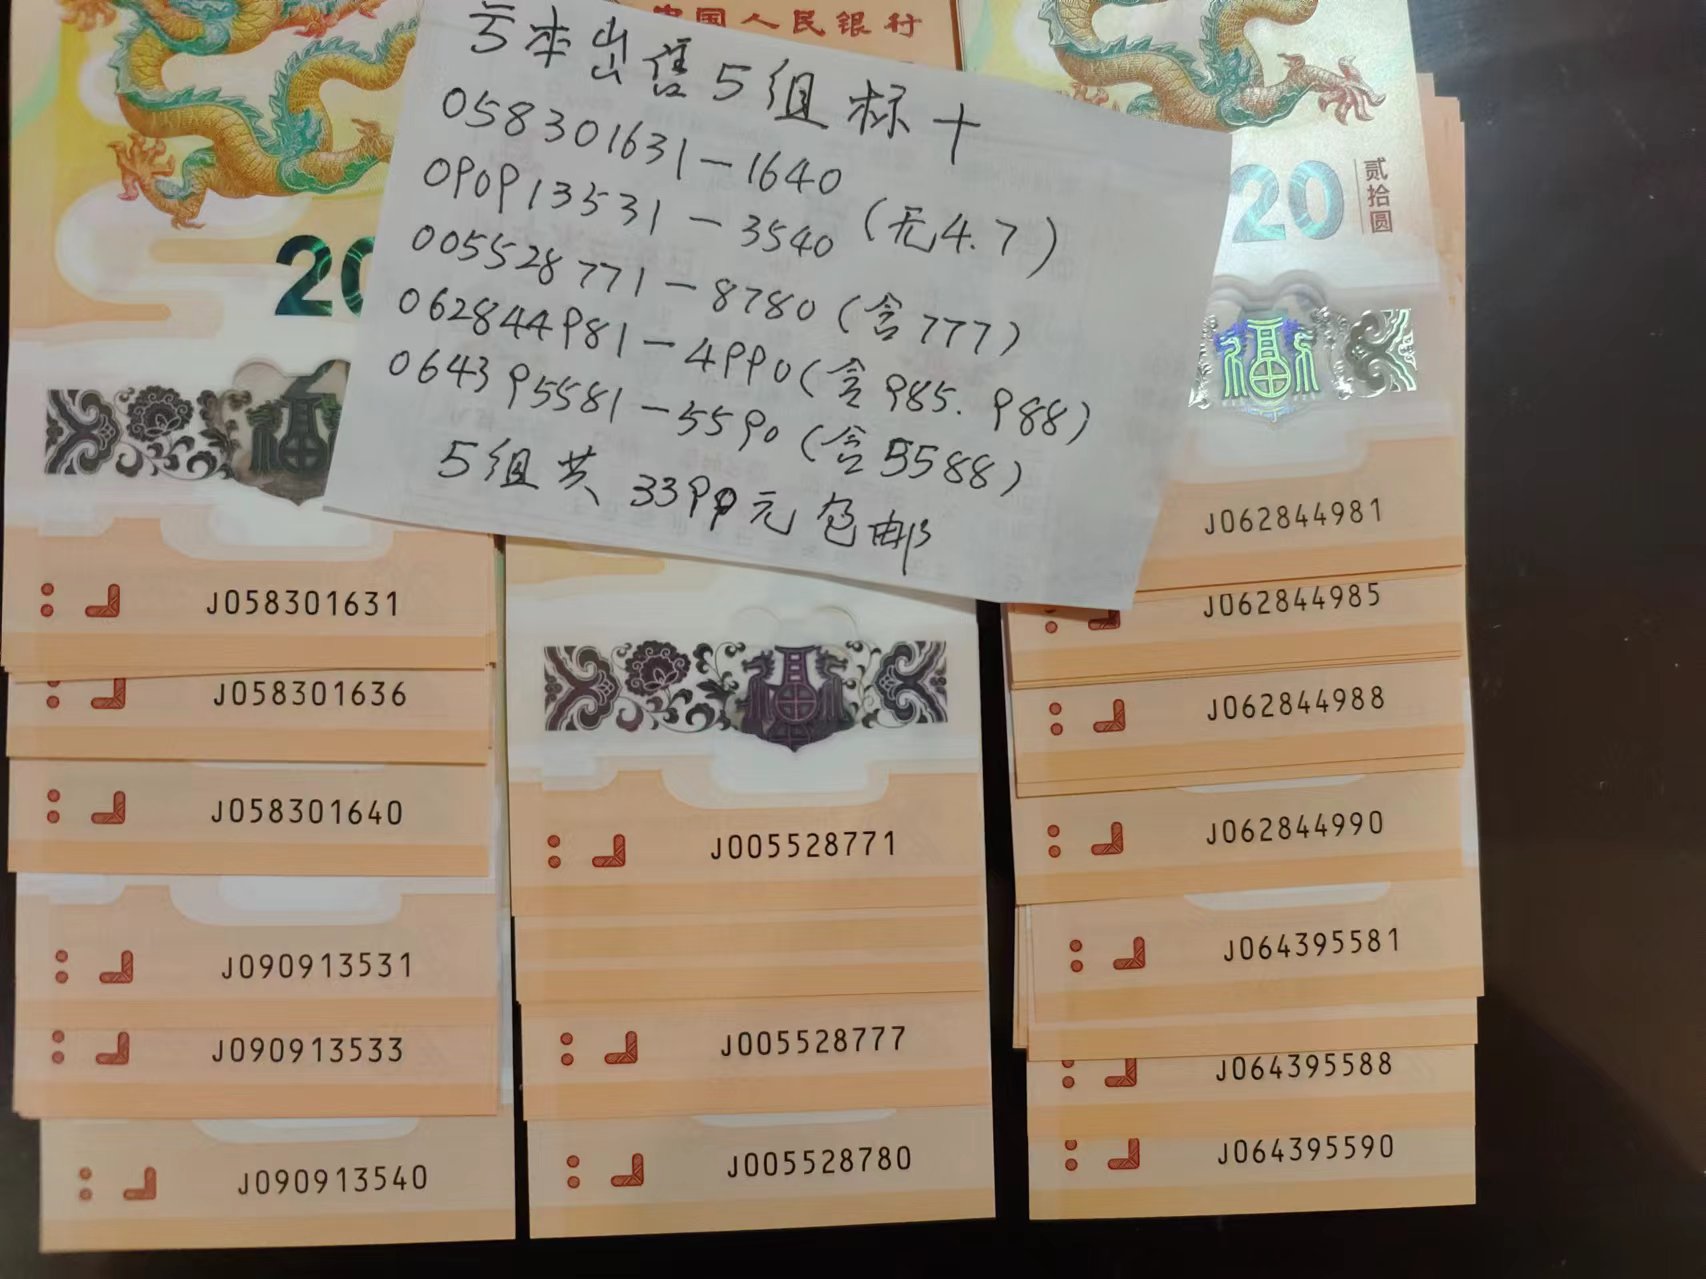 中国人民银行
亏本出售5组标十
058301631-1640
090913531-3540(无4.7)
005528771-8780(含777)
062844981-4990(含985.988)
064395581-5590(含5588)
5组共3399元包邮
20
20
贰拾圆
福
福
福
J058301631
J058301636
J058301640
J090913531
J090913533
J090913540
J005528771
J005528777
J005528780
J062844981
J062844985
J062844988
J062844990
J064395581
J064395588
J064395590